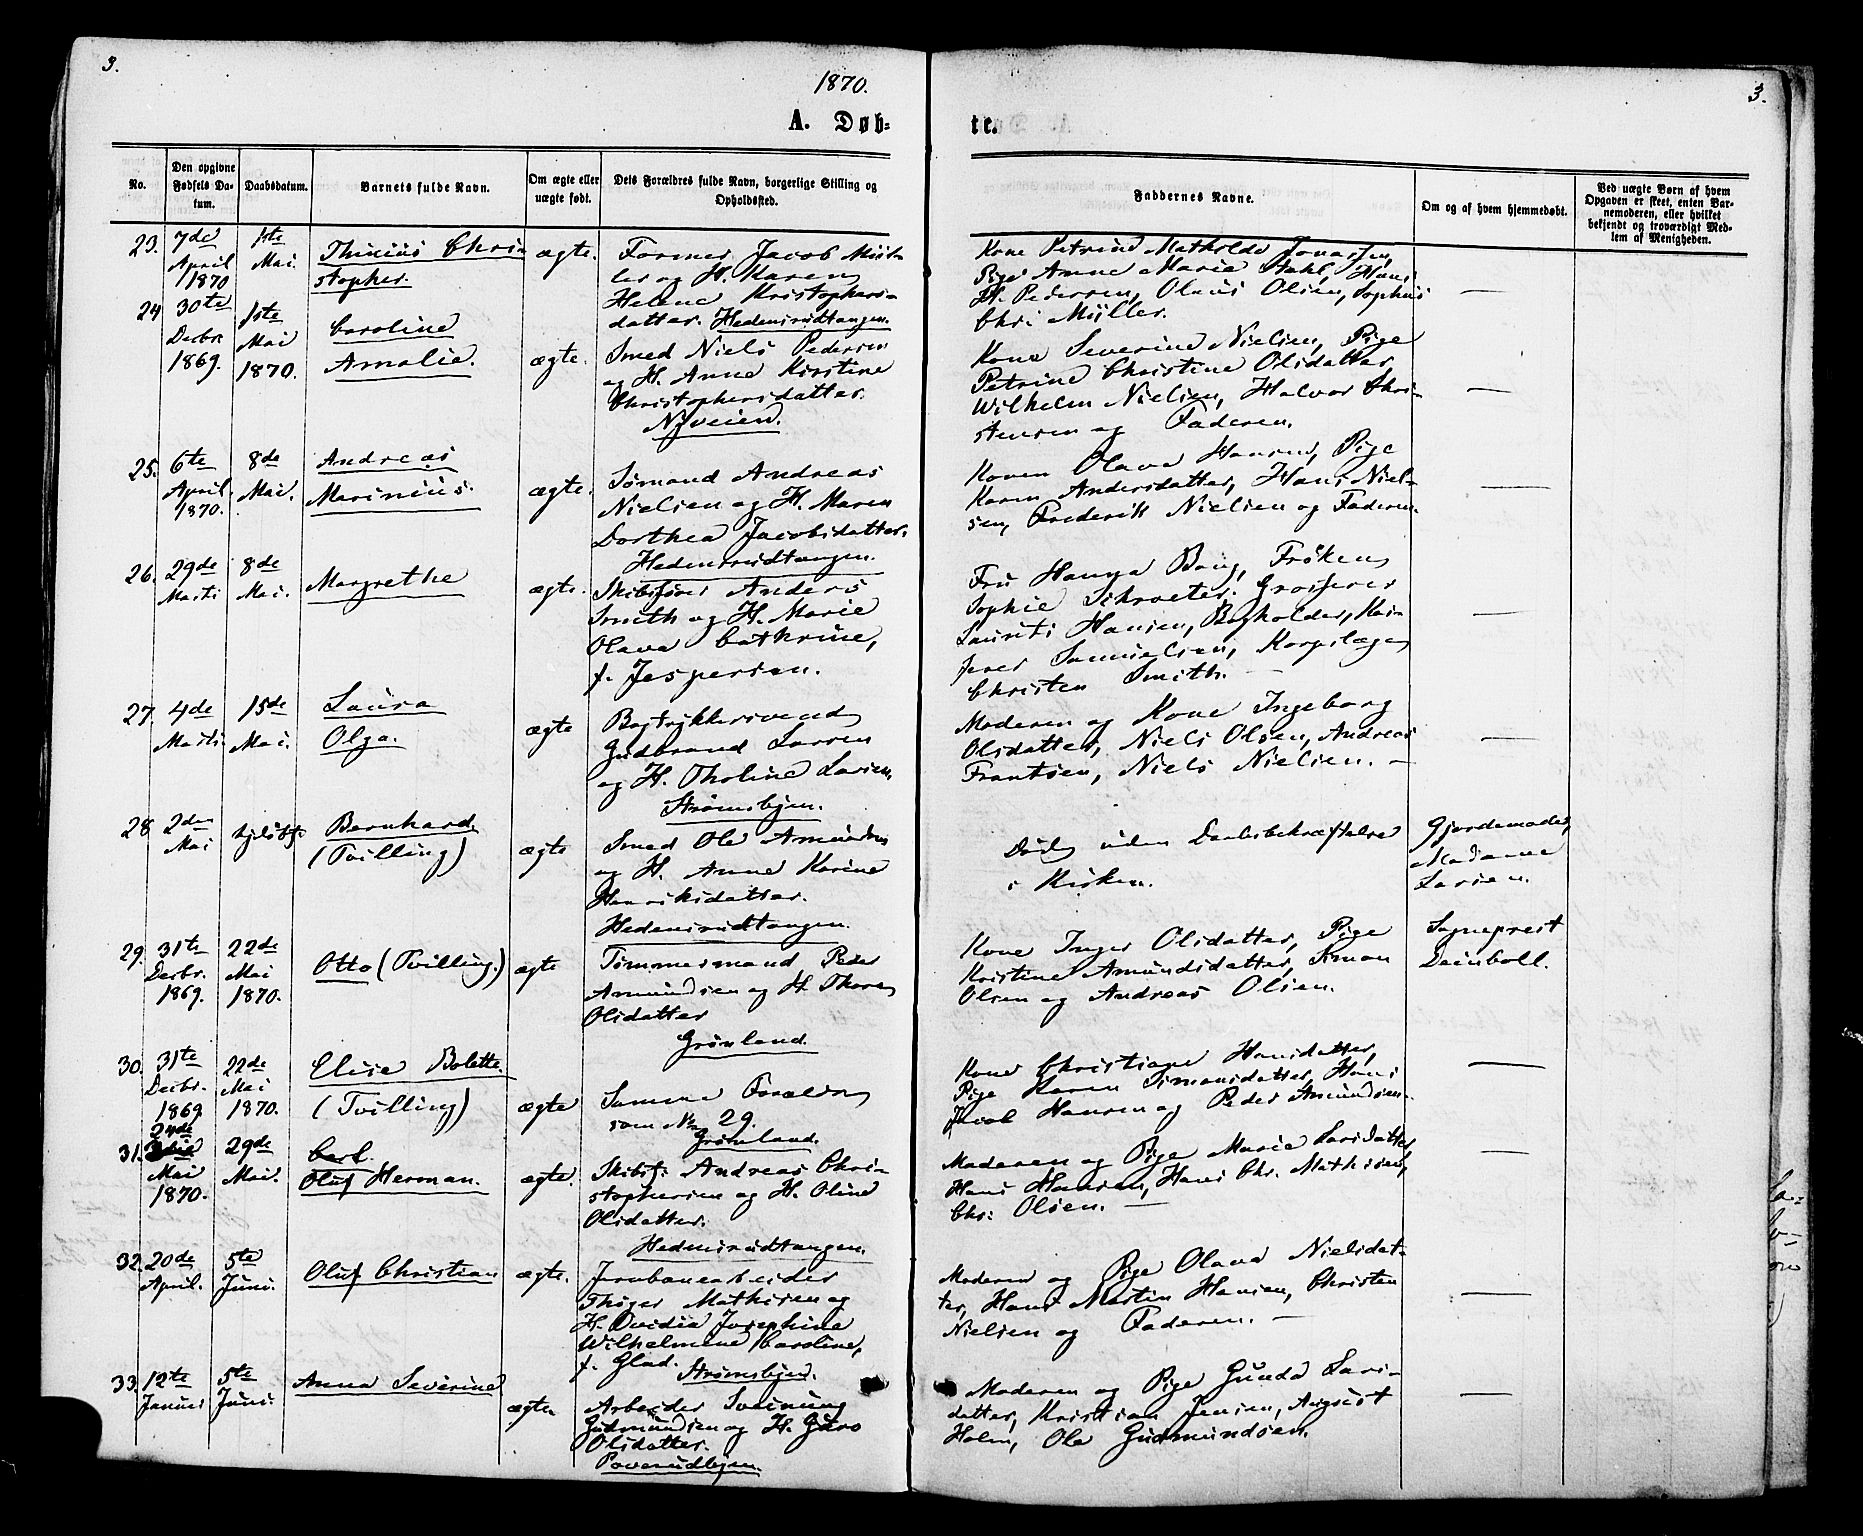 3.
1870.
3.
A. Døb-
te.
No.
Den opgivne Fødsels Da-tum.
Daabsdatum.
Barnets fulde Navn.
Om ægte eller uægte født.
Dets Forældres fulde Navn, borgerlige Stilling og Opholdssted.
Faddernes Navne.
Om og af hvem hjemmedøbt.
Ved uægte Børn af hvem
Opgaven er skeet, enten Bar-
nemoderen, eller hvilket
bekjendt og troværdigt Med-
lem af Menigheden.
23.
7de
April
1870
1ste
Mai.
Chri-
stopher.
ægte.
Former Jacob Mül-
ler og H. Karen
Helene Kristophers-
datter. Hedensrudtangen.
Kone Petrine Mathilde Jonassen,
Pige Anne Marie Dahl, Hans
H. Pedersen, Olaus Olsen, Sophus
Chr: Müller.
—
24
30te
Decbr.
1869.
1ste
Mai
1870.
Caroline
Amalie.
ægte.
Smed Niels Pedersen
og H. Anne Kirstine
Christophersdatter.
Nyveien.
Kone Severine Nielsen, Pige
Petrine Christine Olsdatter
Wilhelm Nielsen, Halvor Chri-
stensen og Faderen.
—
25.
6te
April.
1870.
8de
Mai.
Andreas
Marinius.
ægte.
Sømand Andreas
Nielsen og H. Maren
Dorthea Jacobsdatter.
Hedensrudtangen.
Konen Olava Hansen, Pige
Karen Andersdatter, Hans Niel-
sen, Frederik Nielsen og Faderen.
—
26.
29de
Marts
8de
Mai.
Margrethe
ægte.
Skibsfører Anders
Smith og H. Marie
Olava Cathrine,
f. Jespersen.
Fru Hanna Bang, Frøken
Sophie Schroeter. Grosserer
Laurits Hansen, Bogholder, Kas-
serer Samuelsen, Korpslæge
Christen Smith. —
—
27.
4de
Marts
15de
Mai.
Laura
Olga.
ægte
Bogtrykkersvend
Gudbrand Larsen
og H. Tholine Larsen,
Strømsbyen.
Moderen og Kone Ingeborg
Olsdatter, Niels Olsen, Andreas
Frantsen, Niels Nielsen. —
—
28
2den
Mai
Bernhard
(Tvilling)
ægte
Smed Ole Amundsen
og H. Anne Karine
Henriksdatter.
Hedensrudtangen.
Død uden Daabsbekræftelse
i Kirken.
Gjordemoder,
Madame
Larsen.
29.
31te
Decbr.
1869.
22de
Mai
1870.
Otto (Tvilling.)
ægte
Tømmermand Peder
Amundsen og H. Thoren
Olsdatter
Grønland.
Kone Inger Olsdatter, Pige
Kristine Amundsdatter, Simon
Olsen og Andreas Olsen.
Sogneprest
Deinboll.
30.
31te
Decbr.
1869
22de
Mai
1870.
Elise Bolette.
(Tvilling)
ægte
Samme Forældre
som No 29.
Grønland.
Kone Christiane Hansdatter,
Pige Karen Simonsdatter, Hans
Jacob Hansen og Peder Amundsen.
—
31.
24de
Mai
1870.
29de
Mai.
Carl
Oluf Herman.
ægte.
Skibsf: Andreas Chri-
stophersen og H. Oline
Olsdatter.
Hedensrudtangen.
Moderen og Pige Marie Larsdatter,
Hans Hansen, Hans Chr. Mathisen,
Chr: Olsen. —
—
32.
20de
April.
5te
Juni.
Oluf Christian
ægte.
Jernbanearbeider
Thøger Mathisen og
H. Ovidia Josephine
Wilhelmine Caroline,
f. Glad. Strømsbyen.
Moderen og Pige Olava Nielsdat-
ter, Hans Martin Hansen, Christen
Nielsen og Faderen. —
—
33.
12te
Januar
5te
Juni.
Anna Severine
ægte.
Arbeider Sveinung
Gudmundsen og H. Guro
Olsdatter.
Paverudbyen.
Moderen og Pige Gunda Lars-
datter, Kristian Jensen, August
Holm, Ole Gudmundsen.
—